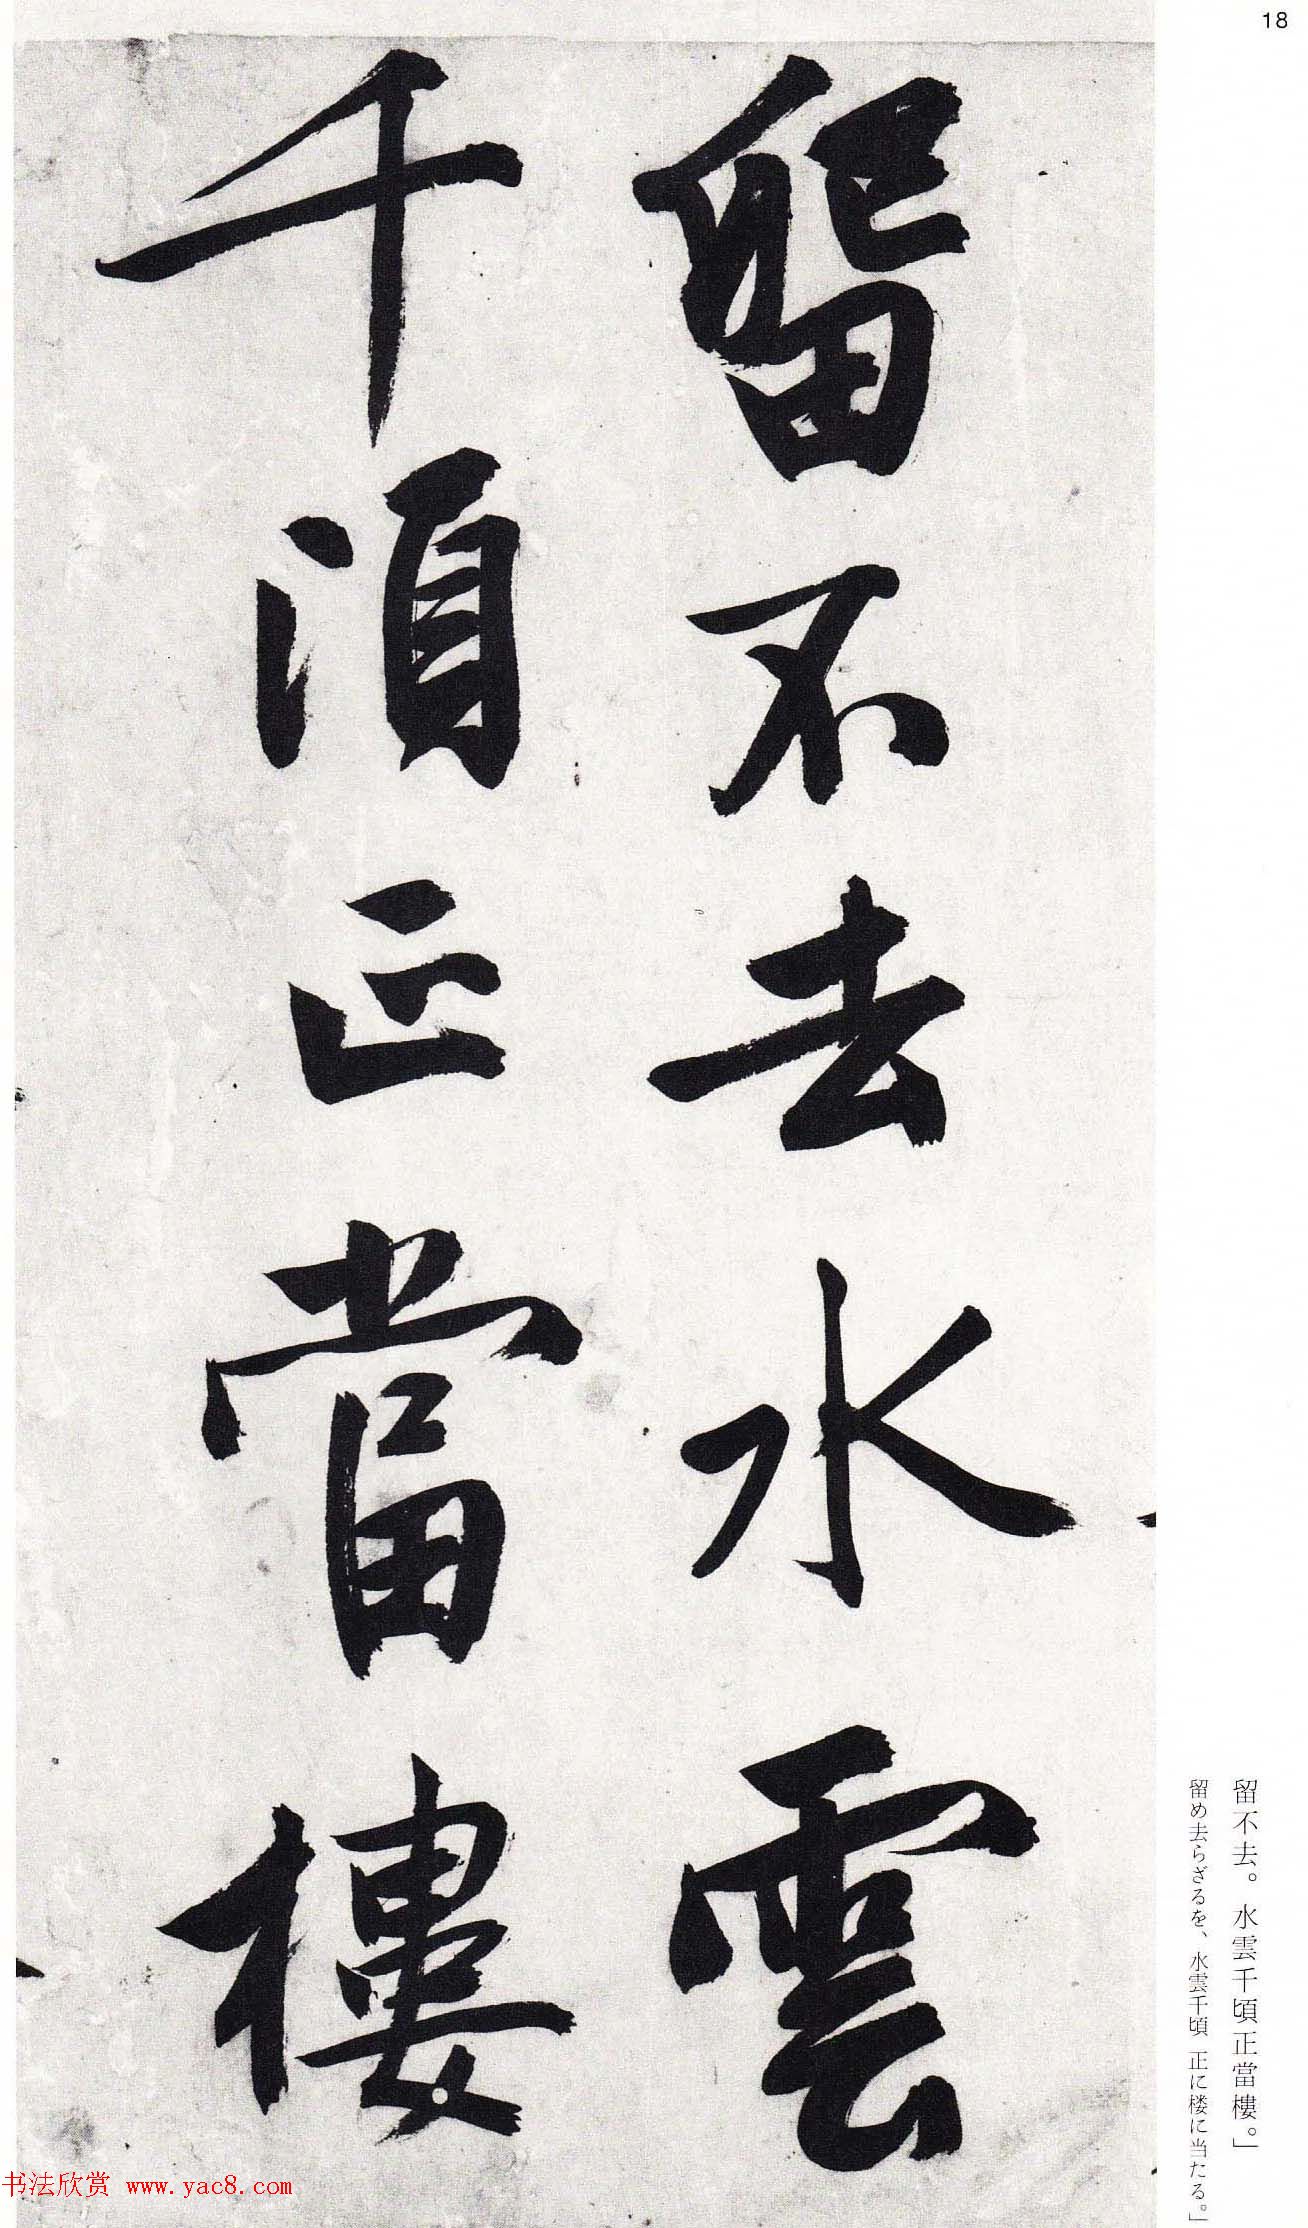 18
留不去水雲
千頃正當樓
留不去。水雲千頃正當樓。」
留め去らざるを、水雲千頃 正に楼に当たる。」
书法欣赏 www.yac8.com